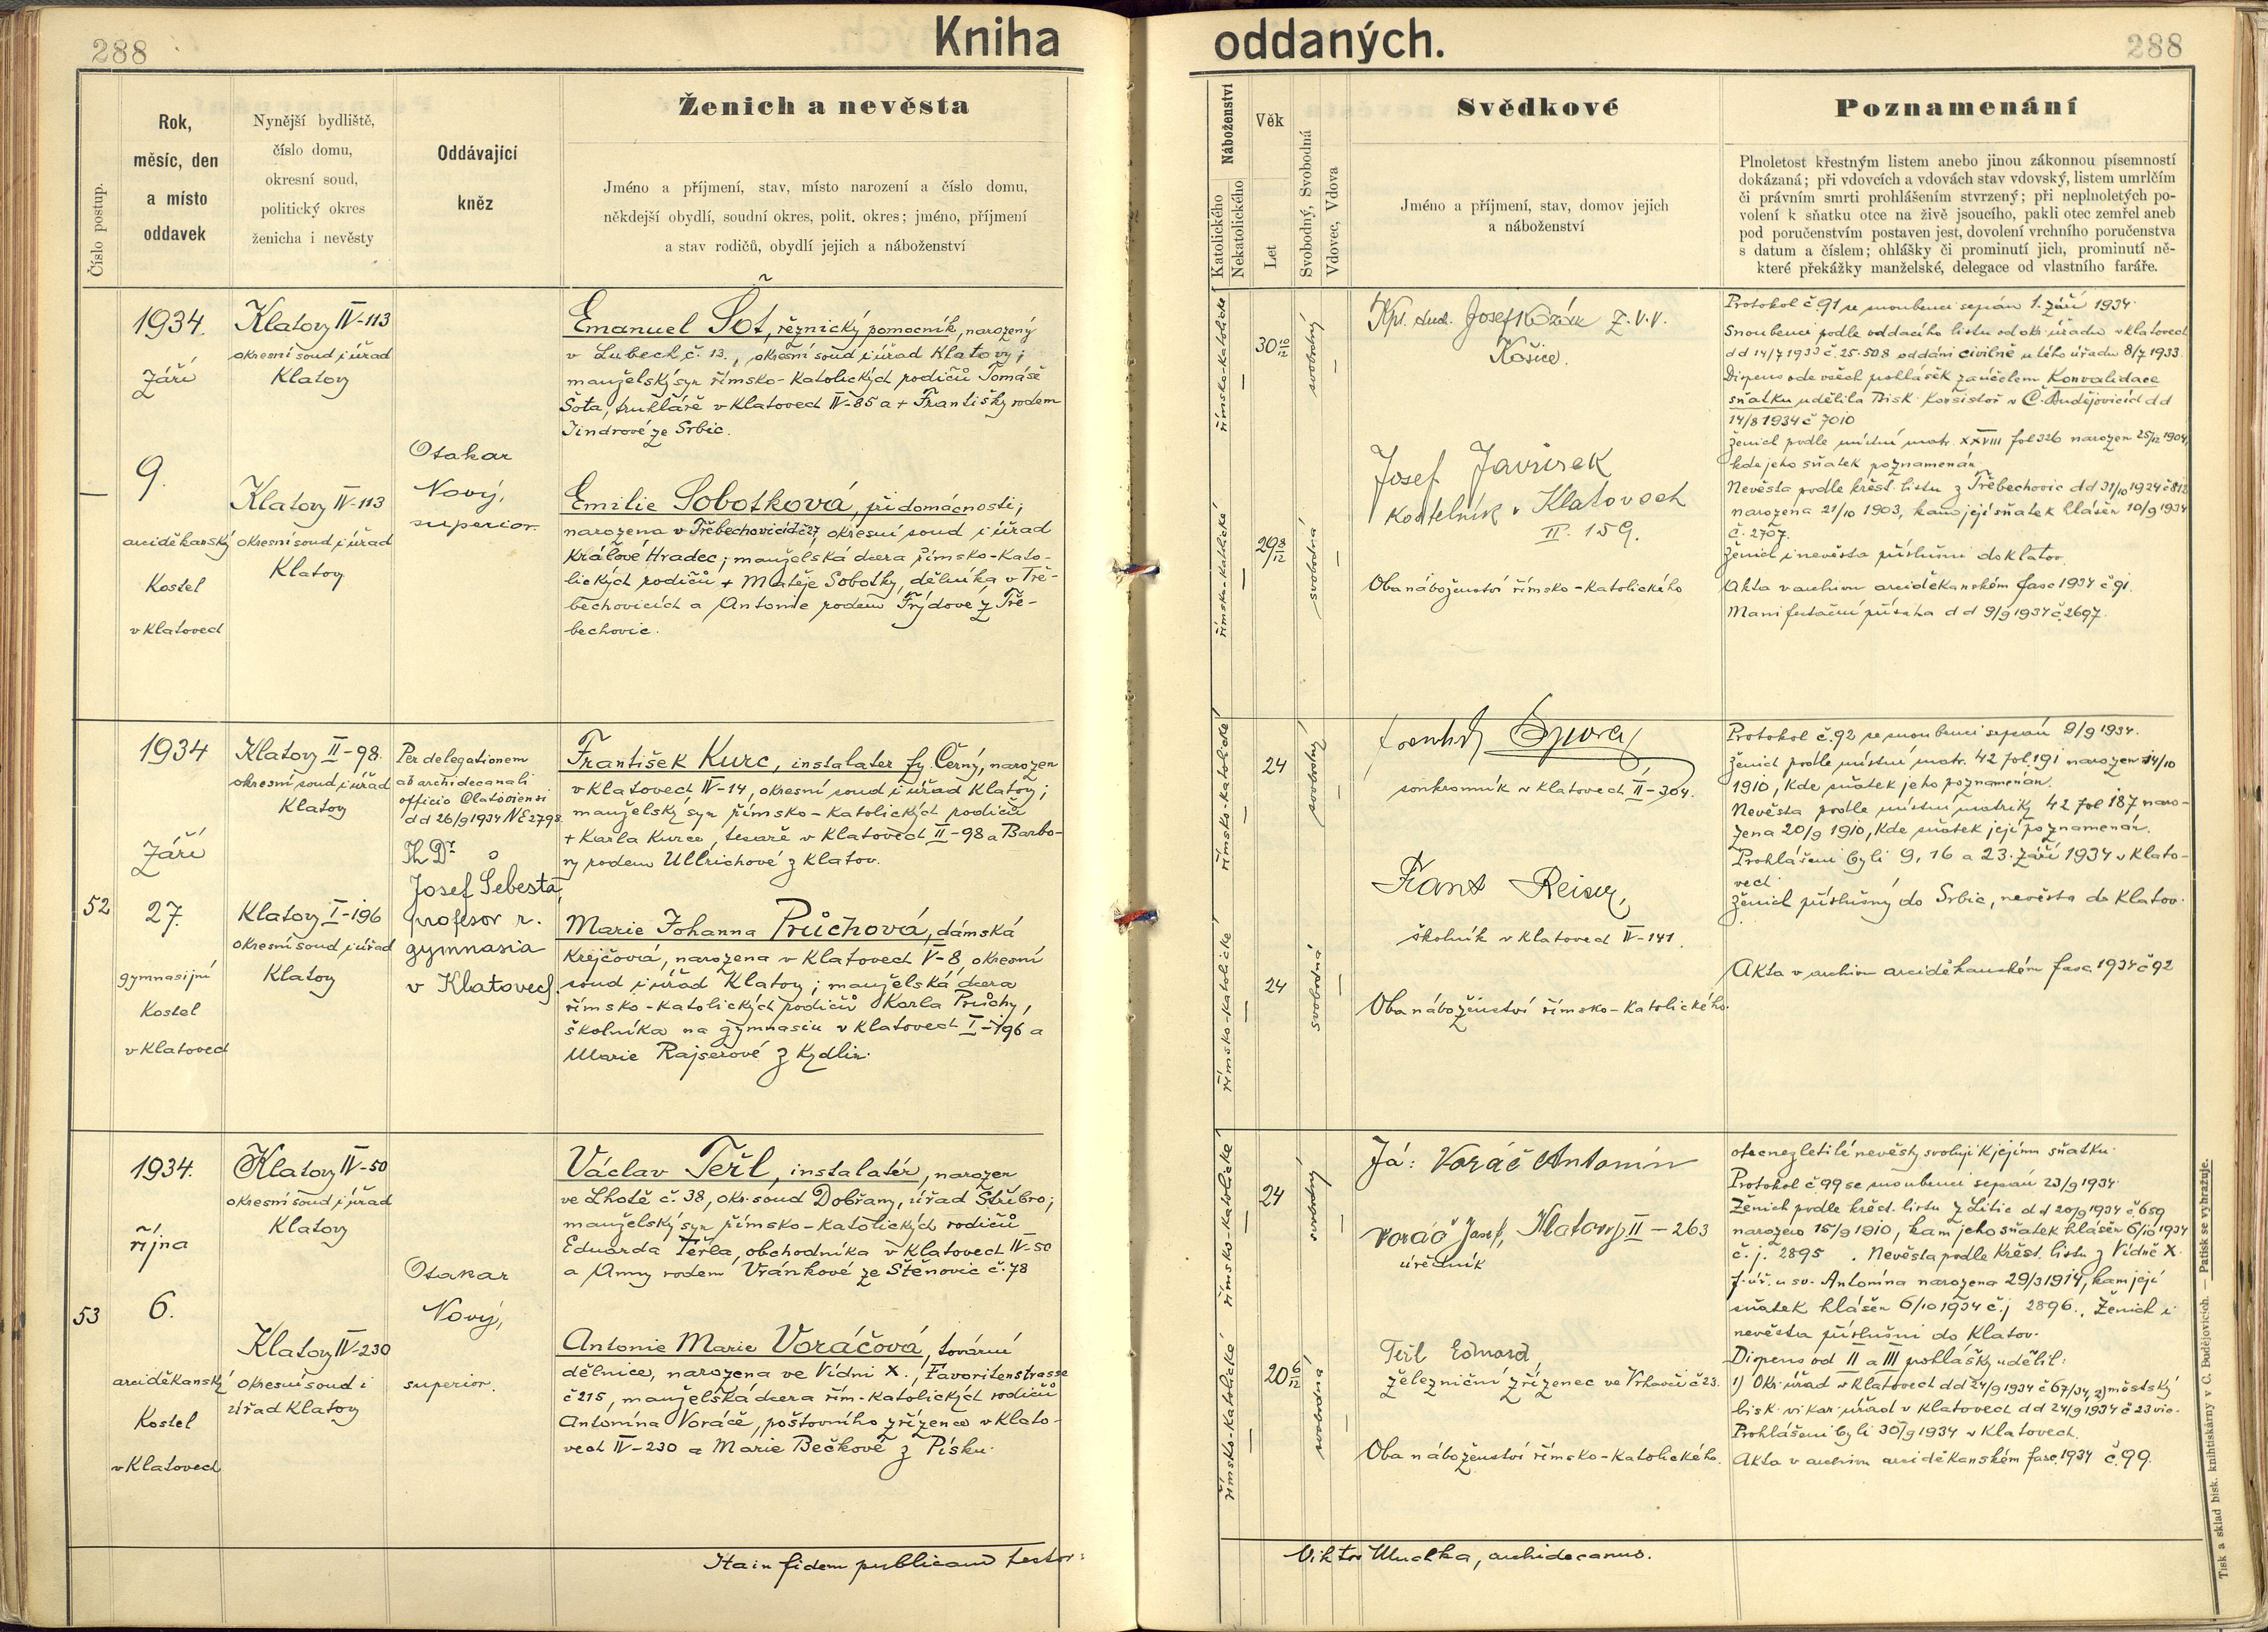 288
Kniha
oddaných.
288
Číslo postup.
Rok,
měsíc, den
a místo
oddavek
Nynější bydliště,
číslo domu,
okresní soud,
politický okres
ženicha i nevěsty
Oddávající
kněz
Ženich a nevěsta
Jméno a příjmení, stav, místo narození a číslo domu,
někdejší obydlí, soudní okres, polit. okres; jméno, příjmení
a stav rodičů, obydlí jejich a náboženství
Náboženství
Katolického
Nekatolického
Věk
Let
Svobodný, Svobodná
Vdovec, Vdova
Svědkové
Jméno a příjmení, stav, domov jejich
a náboženství
Poznamenání
Plnoletost křestným listem anebo jinou zákonnou písemností
dokázaná; při vdovcích a vdovách stav vdovský, listem umrlčím
či právním smrti prohlášením stvrzený; při neplnoletých po-
volení k sňatku otce na živě jsoucího, pakli otec zemřel aneb
pod poručenstvím postaven jest, dovolení vrchního poručenstva
s datum a číslem; ohlášky či prominutí jich, prominutí ně-
které překážky manželské, delegace od vlastního faráře.
—
1934.
Září
9.
arciděkanský
Kostel
v Klatovech
Klatovy IV-113
okresní soud i úřad
Klatovy
Klatovy IV-113
okresní soud i úřad
Klatovy
Otakar
Nový,
superior.
Emanuel Šot, řeznický pomocník, narozený
v Lubech č. 13., okresní soud i úřad Klatovy;
manželský syn římsko-katolických rodičů Tomáše
Šota, truhláře v Klatovech IV-85 a + Františky rodem
Jindrové ze Srbic.
Emilie Sobotková, při domácnosti;
narozena v Třebechovicích č 27, okresní soud i úřad
Králové Hradec; manželská dcera římsko-kato-
lických rodičů + Matěje Sobotky, dělníka v Tře-
bechovicích a Antonie rodem Frýdové z Tře-
bechovic.
římsko-katolické
římsko-katolické
30 10/12
29 8/12
svobodný
svobodná
Josef
Z.V.V.
Košice.
Josef Javůrek
Kostelník v Klatovech
II. 159.
Oba náboženství římsko-katolického
Protokol č. 91 se snoubenci sepsán 1. září 1934.
Snoubenci podle oddacího listu od okr. úřadu v Klatovech
dd 14/7 1933 č. 25.508 oddáni civilně u tého úřadu 8/7 1933.
Dispens ode všech prohlášek za účelem Konvalidace
sňatku udělila Bisk. Konsistoř v Č. Budějovicích dd
14/8 1934 č 7010
Ženich podle místní matr. XXVIII fol 326 narozen 25/12 1904,
kde jeho sňatek poznamenán.
Nevěsta podle křest. listu z Třebechovic dd 31/10 1924 č 812
narozena 21/10 1903, kam její sňatek hlášen 10/9 1934
č. 2707.
Ženich i nevěsta příslušni do Klatov.
Akta v archivu arciděkanském fasc 1934 č. 91.
Manifestační přísaha dd 9/9 1934 č. 2697.
52
1934
Září
27.
gymnasijní
Kostel
v Klatovech
Klatovy II-98.
okresní soud i úřad
Klatovy
Klatovy I-196
okresní soud i úřad
Klatovy
Per delegationem
ab archidecanali
officio Clatoviensi
dd 26/9 1934 NE 2798
Th Dr
Josef Šebesta,
profesor r.
gymnasia
v Klatovech.
František Kurc, instalater fy Černý, narozen
v Klatovech IV-14, okresní soud i úřad Klatovy;
manželský syn římsko-katolických rodičů
+ Karla Kurce, tesaře v Klatovech II-98 a Barbo-
ry rodem Ullrichové z Klatov.
Marie Johanna Průchová, dámská
Krejčová, narozena v Klatovech V-8 okresní
soud i úřad Klatovy; manželská dcera
římsko-katolických rodičů Karla Průchy,
školníka na gymnasiu v Klatovech I-196 a
Marie Rajserové z Kydlin.
římsko-katolické
římsko-katolické
24
24
svobodný
svobodná
soukromník v Klatovech II-304.
Franz Reiser,
školník v Klatovech IV-141.
Oba náboženství římsko-katolického.
Protokol č. 92 se snoubenci sepsán 9/9 1934.
Ženich podle místní matr. 42 fol. 191 narozen 14/10
1910, kde sňatek jeho poznamenán.
Nevěsta podle místní matriky 42 fol 187 naro-
zena 20/9 1910, kde sňatek její poznamenán.
Prohlášeni byli 9, 16 a 23. září 1934 v Klato-
vech.
Ženich příslušný do Srbic, nevěsta do Klatov.
Akta v archivu arciděkanském fasc. 1934 č 92
53
1934.
října
6.
arciděkanský
Kostel
v Klatovech
Klatovy IV-50
okresní soud i úřad
Klatovy
Klatovy IV-230
okresní soud i
úřad Klatovy
Otakar
Nový,
superior.
Václav Teřl, instalatér, narozen
ve Lhotě č. 38, okr. soud Dobřany, úřad Stříbro;
manželský syn římsko-katolických rodičů
Eduarda Teřla, obchodníka v Klatovech IV-50
a Anny rodem Vránkové ze Štěnovic č. 78
Antonie Marie Voráčová, tovární
dělnice, narozena ve Vídni X., Favoritenstrasse
č 215, manželská dcera řím-katolických rodičů
Antonína Voráče, poštovního zřízence v Klato-
vech IV-230 a Marie Bečkové z Písku.
římsko-katolické
římsko-katolické
24
20 6/12
svobodný
svobodná
Já: Voráč Antonín
Voráč Josef, Klatovy II - 263
úředník
Teřl Edward
železniční zřízenec ve Vrhavči č 23.
Oba náboženství římsko-katolického.
otec nezletilé nevěsty svoluji k jejímu sňatku.
Protokol č. 99 se snoubenci sepsán 23/9 1934.
Ženich podle křest. listu z Litic dd 20/9 1934 č 659
narozen 15/9 1910, kam jeho sňatek hlášen 6/10 1934
č. j. 2895. Nevěsta podle křest. listu z Vídně X.
f. úř. u sv. Antonína narozena 29/3 1914, kam její
sňatek hlášen 6/10 1934 č. j 2896. Ženich i
nevěsta příslušni do Klatov.
Dispens od II a III prohlášky udělil:
1) Okr. úřad v Klatovech dd 24/9 1934 č 67/34, 2) městský
bisk. vikar. úřad v Klatovech dd 24/9 1934 č 23 vic.
Prohlášeni byli 30/9 1934 v Klatovech.
Akta v archivu arciděkanském fasc. 1934 č. 99.
Ita in fidem publicam testor:
Viktor, archidecanus.
Tisk a sklad bisk. knihtiskárny v Č. Budějovicích. — Patisk se vyhražuje.